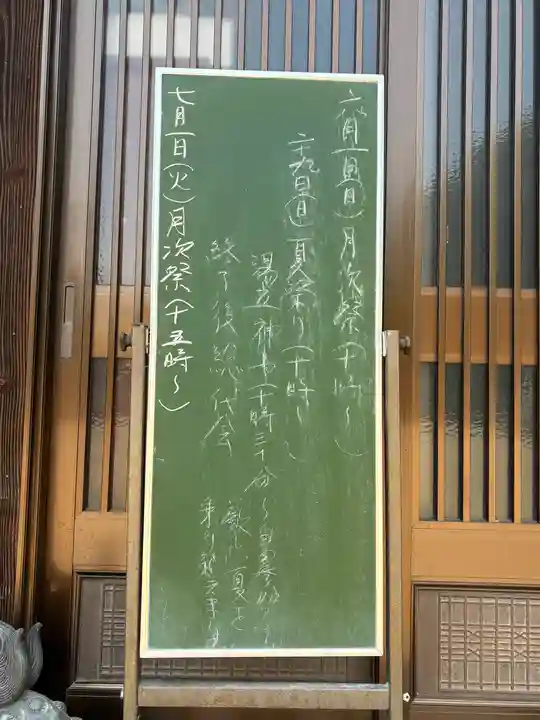 六月一日(日)月次祭(十時〜)
二十九日(日)夏祭り(十時〜)
湯立神事(十時三十分〜
終了後総代会
厳しい夏を
乗り越えます
七月一日(火)月次祭(十五時〜)